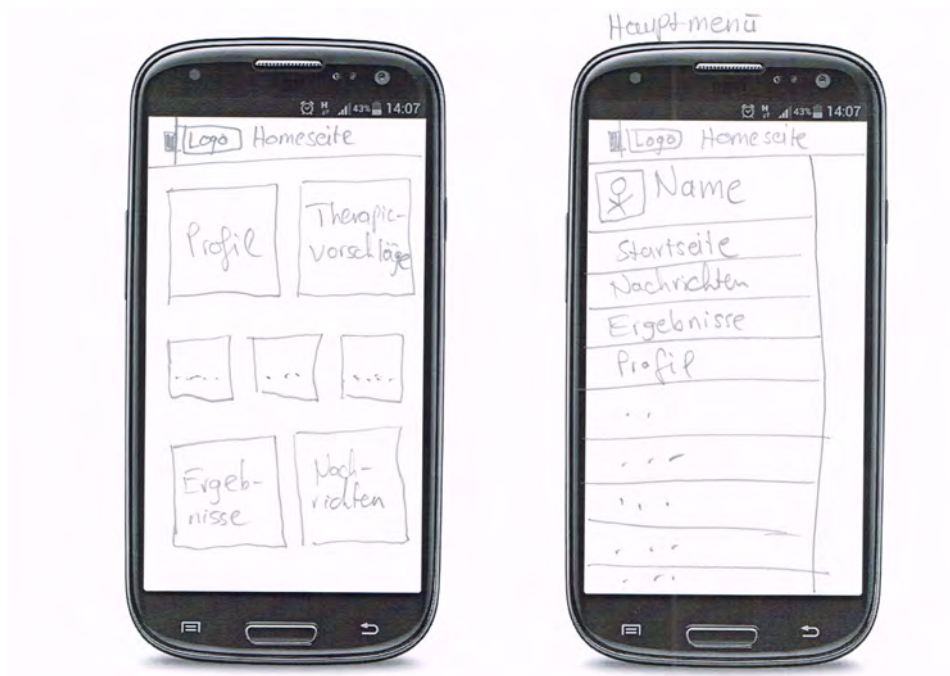 Hauptmenü
43% 14:07
Logo Homeseite
Profil
Therapie-
vorschläge
.....
...
....
Ergeb-
nisse
Nach-
richten
43% 14:07
Logo Homeseite
Name
Startseite
Nachrichten
Ergebnisse
Profil
..
...
...
...
...